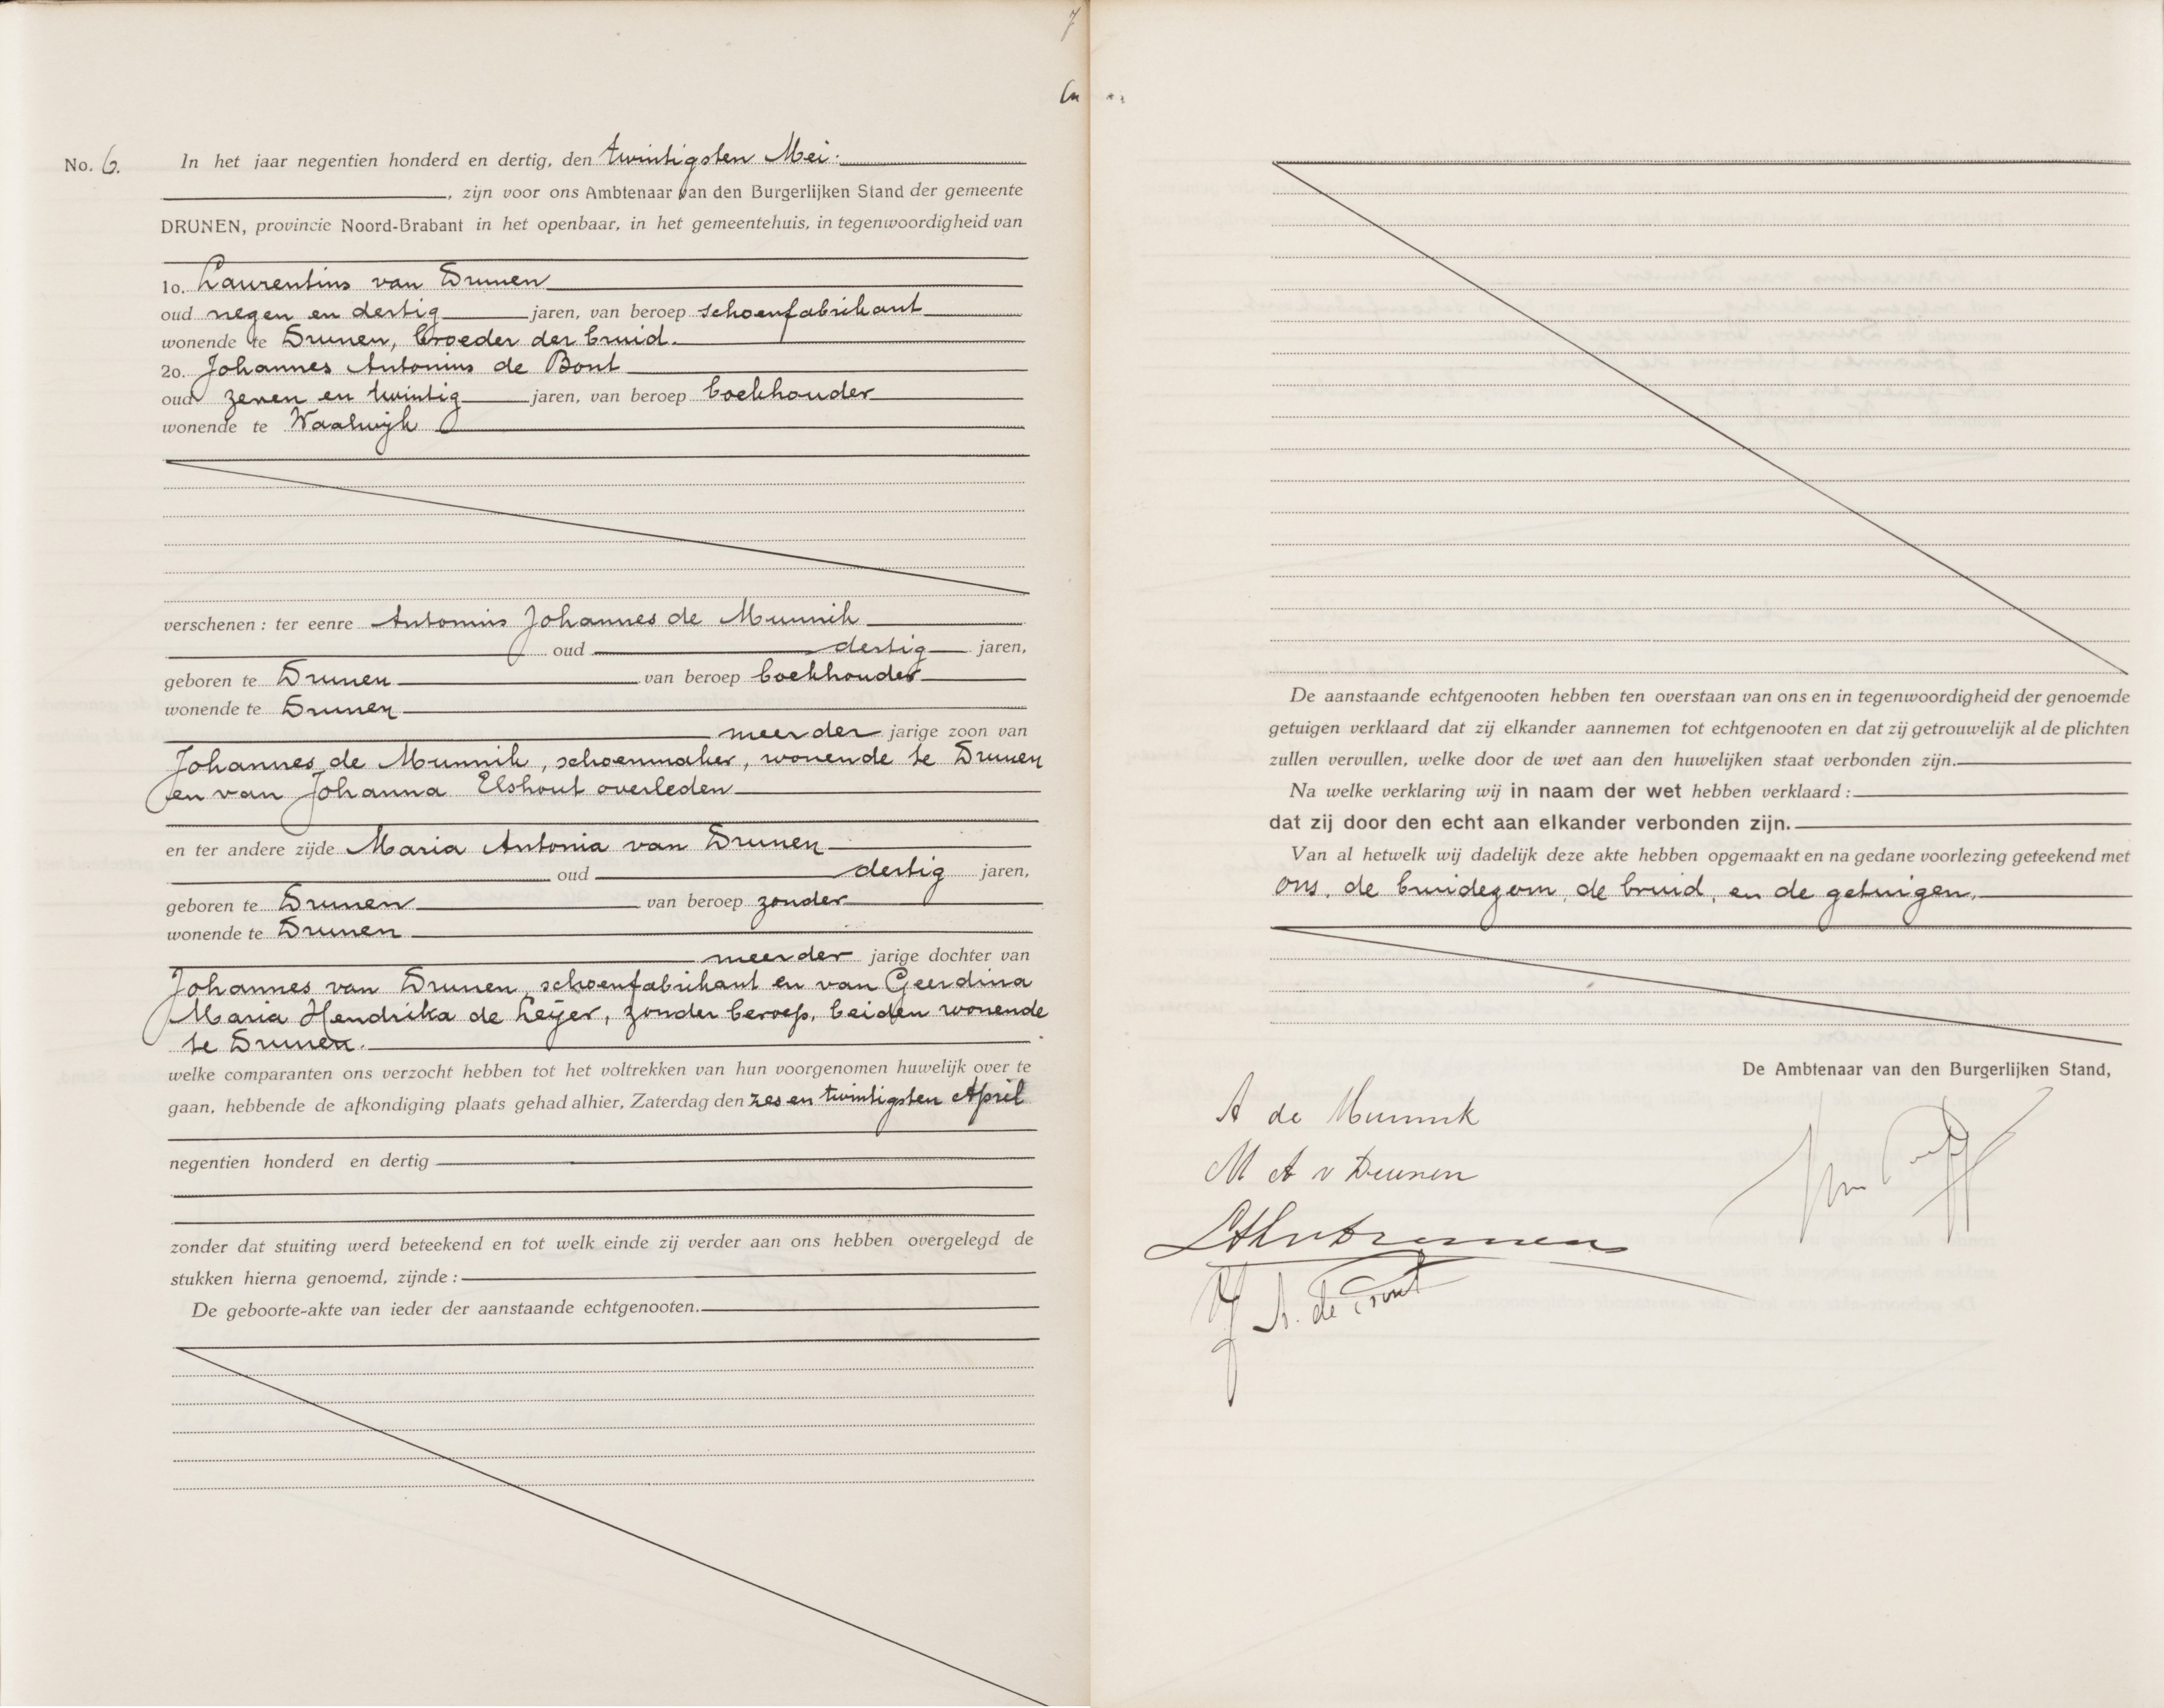 7
No. 6. In het jaar negentien honderd en dertig, den twintigsten Mei.
, zijn voor ons Ambtenaar van den Burgerlijken Stand der gemeente
DRUNEN, provincie Noord-Brabant in het openbaar, in het gemeentehuis, in tegenwoordigheid van
1o. Laurentius van Drunen
oud negen en dertig jaren, van beroep schoenfabrikant
wonende te Drunen, broeder der bruid.
2o. Johannes Antonius de Bont
oud zeven en twintig jaren, van beroep boekhouder
wonende te Waalwijk
verschenen : ter eenre Antonius Johannes de Munnik
oud dertig jaren,
geboren te Drunen van beroep boekhouder
wonende te Drunen
meerder jarige zoon van
Johannes de Munnik, schoenmaker, wonende te Drunen
en van Johanna Elshout overleden
en ter andere zijde Maria Antonia van Drunen
oud dertig jaren,
geboren te Drunen van beroep zonder
wonende te Drunen
meerder jarige dochter van
Johannes van Drunen, schoenfabrikant en van Geerdina
Maria Hendrika de Leijer, zonder beroep, beiden wonende
te Drunen.
welke comparanten ons verzocht hebben tot het voltrekken van hun voorgenomen huwelijk over te
gaan, hebbende de afkondiging plaats gehad alhier, Zaterdag den zes en twintigsten April
negentien honderd en dertig
zonder dat stuiting werd beteekend en tot welk einde zij verder aan ons hebben overgelegd de
stukken hierna genoemd, zijnde :
De geboorte-akte van ieder der aanstaande echtgenooten.
De aanstaande echtgenooten hebben ten overstaan van ons en in tegenwoordigheid der genoemde
getuigen verklaard dat zij elkander aannemen tot echtgenooten en dat zij getrouwelijk al de plichten
zullen vervullen, welke door de wet aan den huwelijken staat verbonden zijn.
Na welke verklaring wij in naam der wet hebben verklaard :
dat zij door den echt aan elkander verbonden zijn.
Van al hetwelk wij dadelijk deze akte hebben opgemaakt en na gedane voorlezing geteekend met
ons, de bruidegom, de bruid, en de getuigen.
De Ambtenaar van den Burgerlijken Stand,
A de Munnik
M A v Drunen
J. A. de Bont